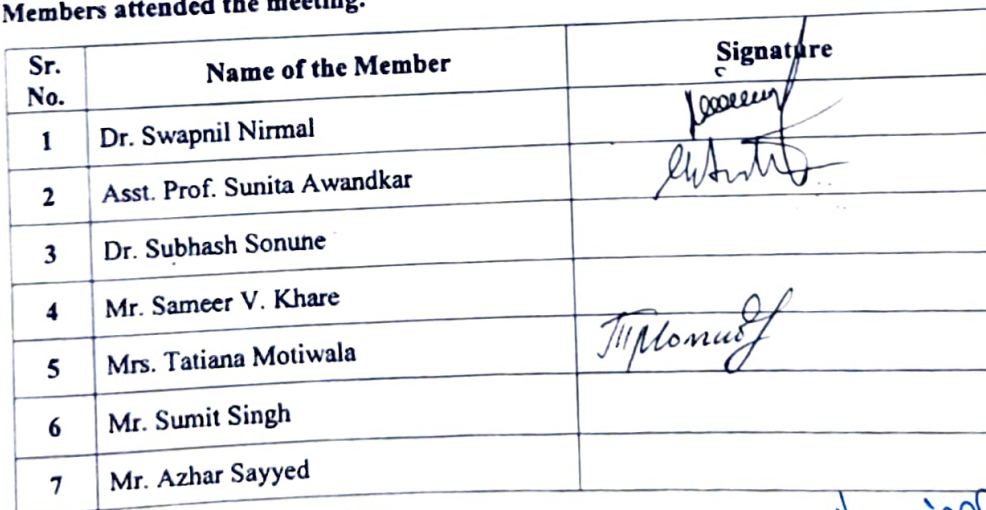 Members attended the meeting.
Sr. No. Name of the Member Signature
1 Dr. Swapnil Nirmal
2 Asst. Prof. Sunita Awandkar
3 Dr. Subhash Sonune
4 Mr. Sameer V. Khare
5 Mrs. Tatiana Motiwala
6 Mr. Sumit Singh
7 Mr. Azhar Sayyed